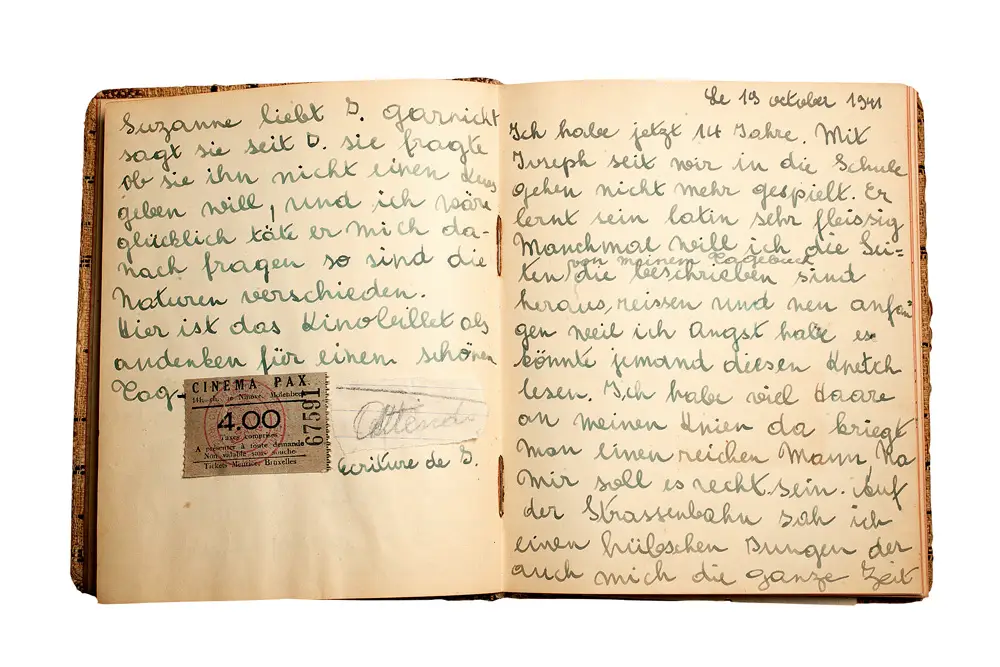 Suzanne liebt D. garnicht
sagt sie seit D. sie fragte
ob sie ihn nicht einen Kuss
geben will, und ich wäre
glücklich täte er mich da-
nach fragen so sind die
Naturen verschieden.
Hier ist das Kinobillet als
andenken für einem schönen
Tag-
CINEMA PAX.
4.00
67591
Taxes comprises
A présenter à toute demande
Non valable sans souche
Tickets Bruxelles
Attend
écriture de D.
Le 19 october 1941
Ich habe jetzt 14 Jahre. Mit
Joseph seit wir in die Schule
gehen nicht mehr gespielt. Er
lernt sein latin sehr fleissig
Manchmal will ich die Sei-
von meinem Tagebuch
ten die beschrieben sind
heraus,reissen und neu anfan-
gen weil ich Angst habe es
könnte jemand diesen Knetch
lesen. Ich habe viel Haare
an meinen Knien da kriegt
man einen reichen Mann Na
mir soll es recht sein. Auf
der Strassenbahn sah ich
einen hübschen Jungen der
auch mich die ganze Zeit